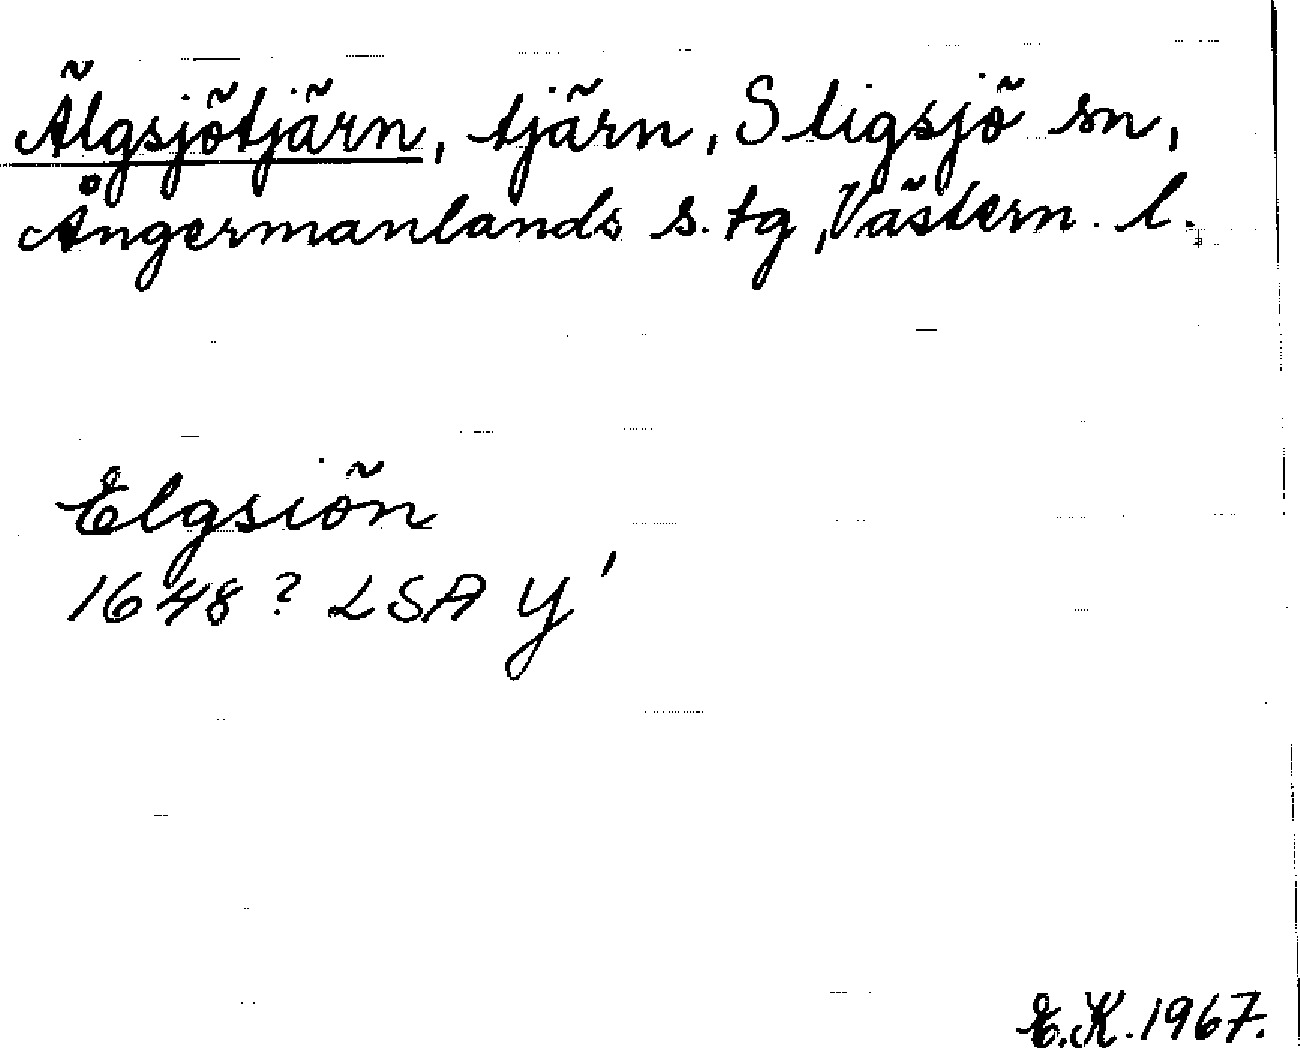 Älgsjötjärn, tjärn, Stigsjö sn,
Ångermanlands s. tg, Västern. l.
Elgsiön
1648? LSA Y'
E.K. 1967.